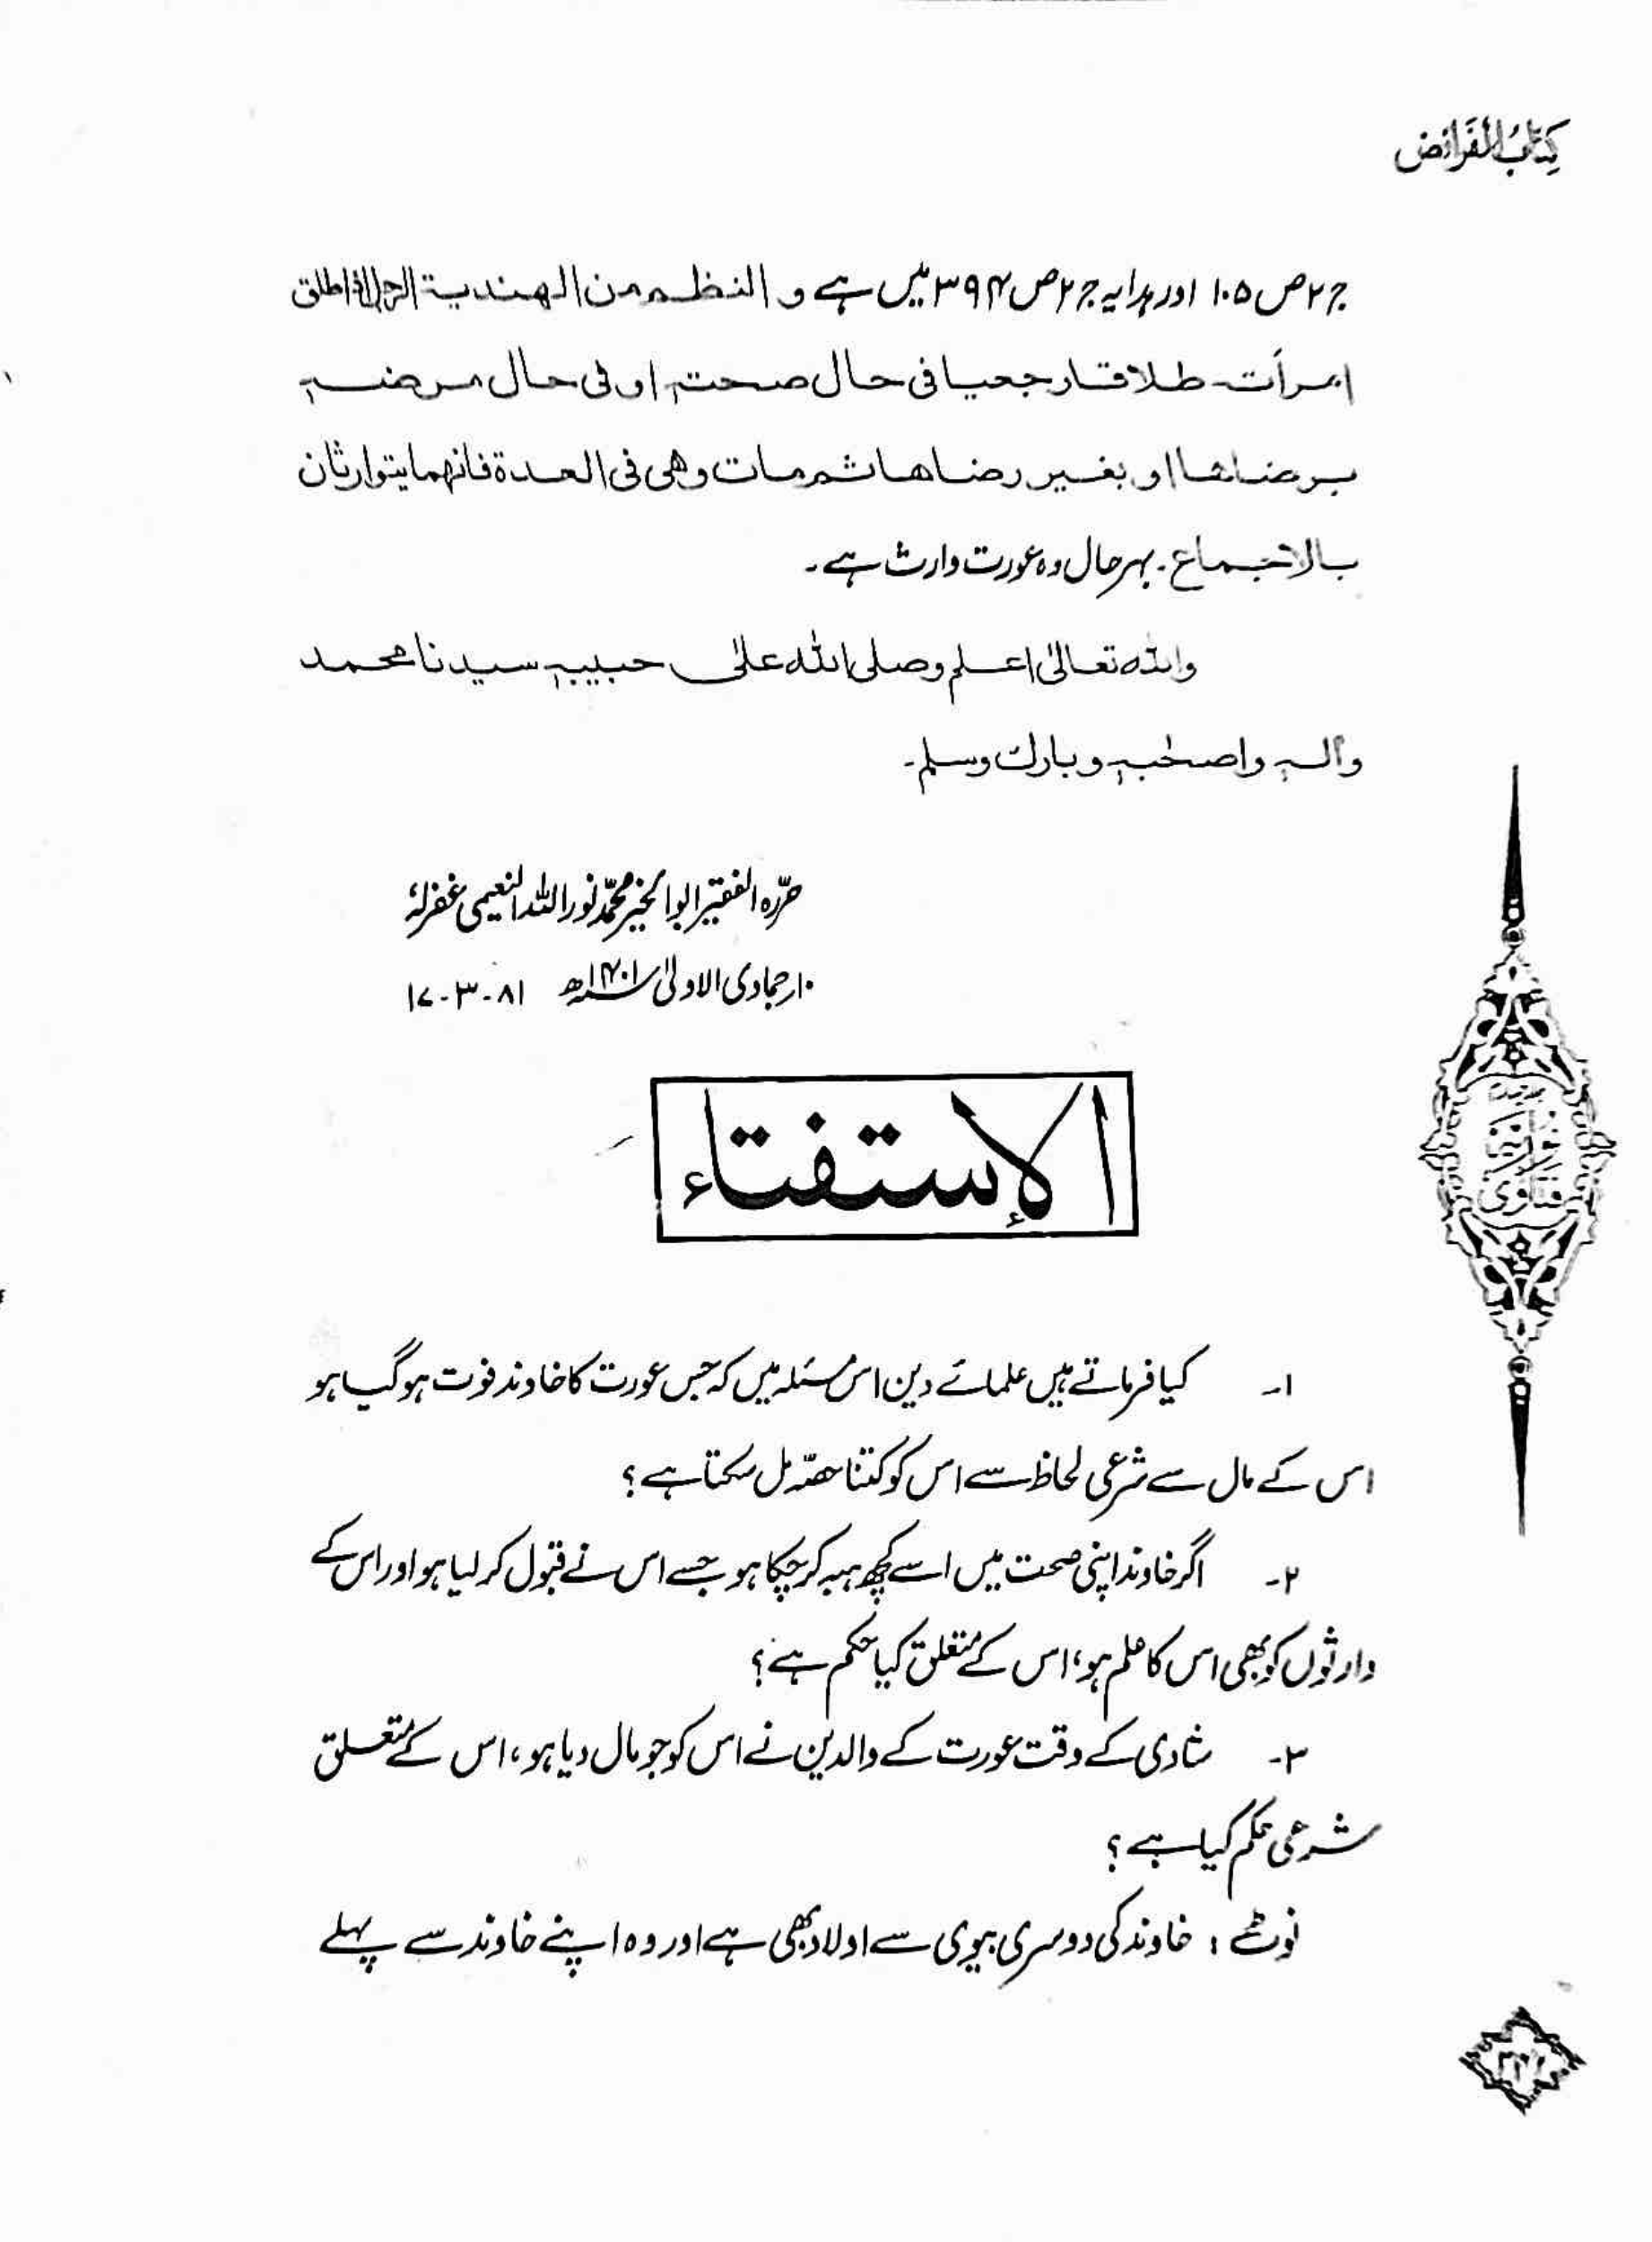 کِتَابُ الفَرَائض
ج ۲ ص ۱۰۵ اور ہدایہ ج ۲ ص ۳۹۴ میں ہے و النظم من الہندیۃ الرجل اذا طلق
امرأتہ طلاقا رجعیا فی حال صحتہٖ او فی حال مرضہٖ
برضاھا او بغیر رضاھا ثم مات وھی فی العدۃ فانھما یتوارثان
بالاجماع ۔ بہرحال وہ عورت وارث ہے ۔
واللہ تعالیٰ اعلم وصلی اللہ علیٰ حبیبہٖ سیدنا محمد
وآلہٖ واصحٰبہٖ وبارک وسلم ۔
حرّرہ الفقیر ابوالخیر محمّد نور اللہ النعیمی غفرلہٗ
۱۰ر جمادی الاولیٰ سنہ ۱۴۰۱ھ ۸۱-۳-۱۷
الإستفتاء
۱- کیا فرماتے ہیں علمائے دین اس مسئلہ میں کہ جس عورت کا خاوند فوت ہو گیا ہو
اس کے مال سے شرعی لحاظ سے اس کو کتنا حصّہ مل سکتا ہے ؟
۲- اگر خاوند اپنی صحت میں اسے کچھ ہبہ کر چکا ہو جسے اس نے قبول کر لیا ہو اور اس کے
وارثوں کو بھی اس کا علم ہو، اس کے متعلق کیا حکم ہے ؟
۳- شادی کے وقت عورت کے والدین نے اس کو جو مال دیا ہو، اس کے متعلق
شرعی حکم کیا ہے ؟
نوٹ : خاوند کی دوسری بیوی سے اولاد بھی ہے اور وہ اپنے خاوند سے پہلے
فتاوی